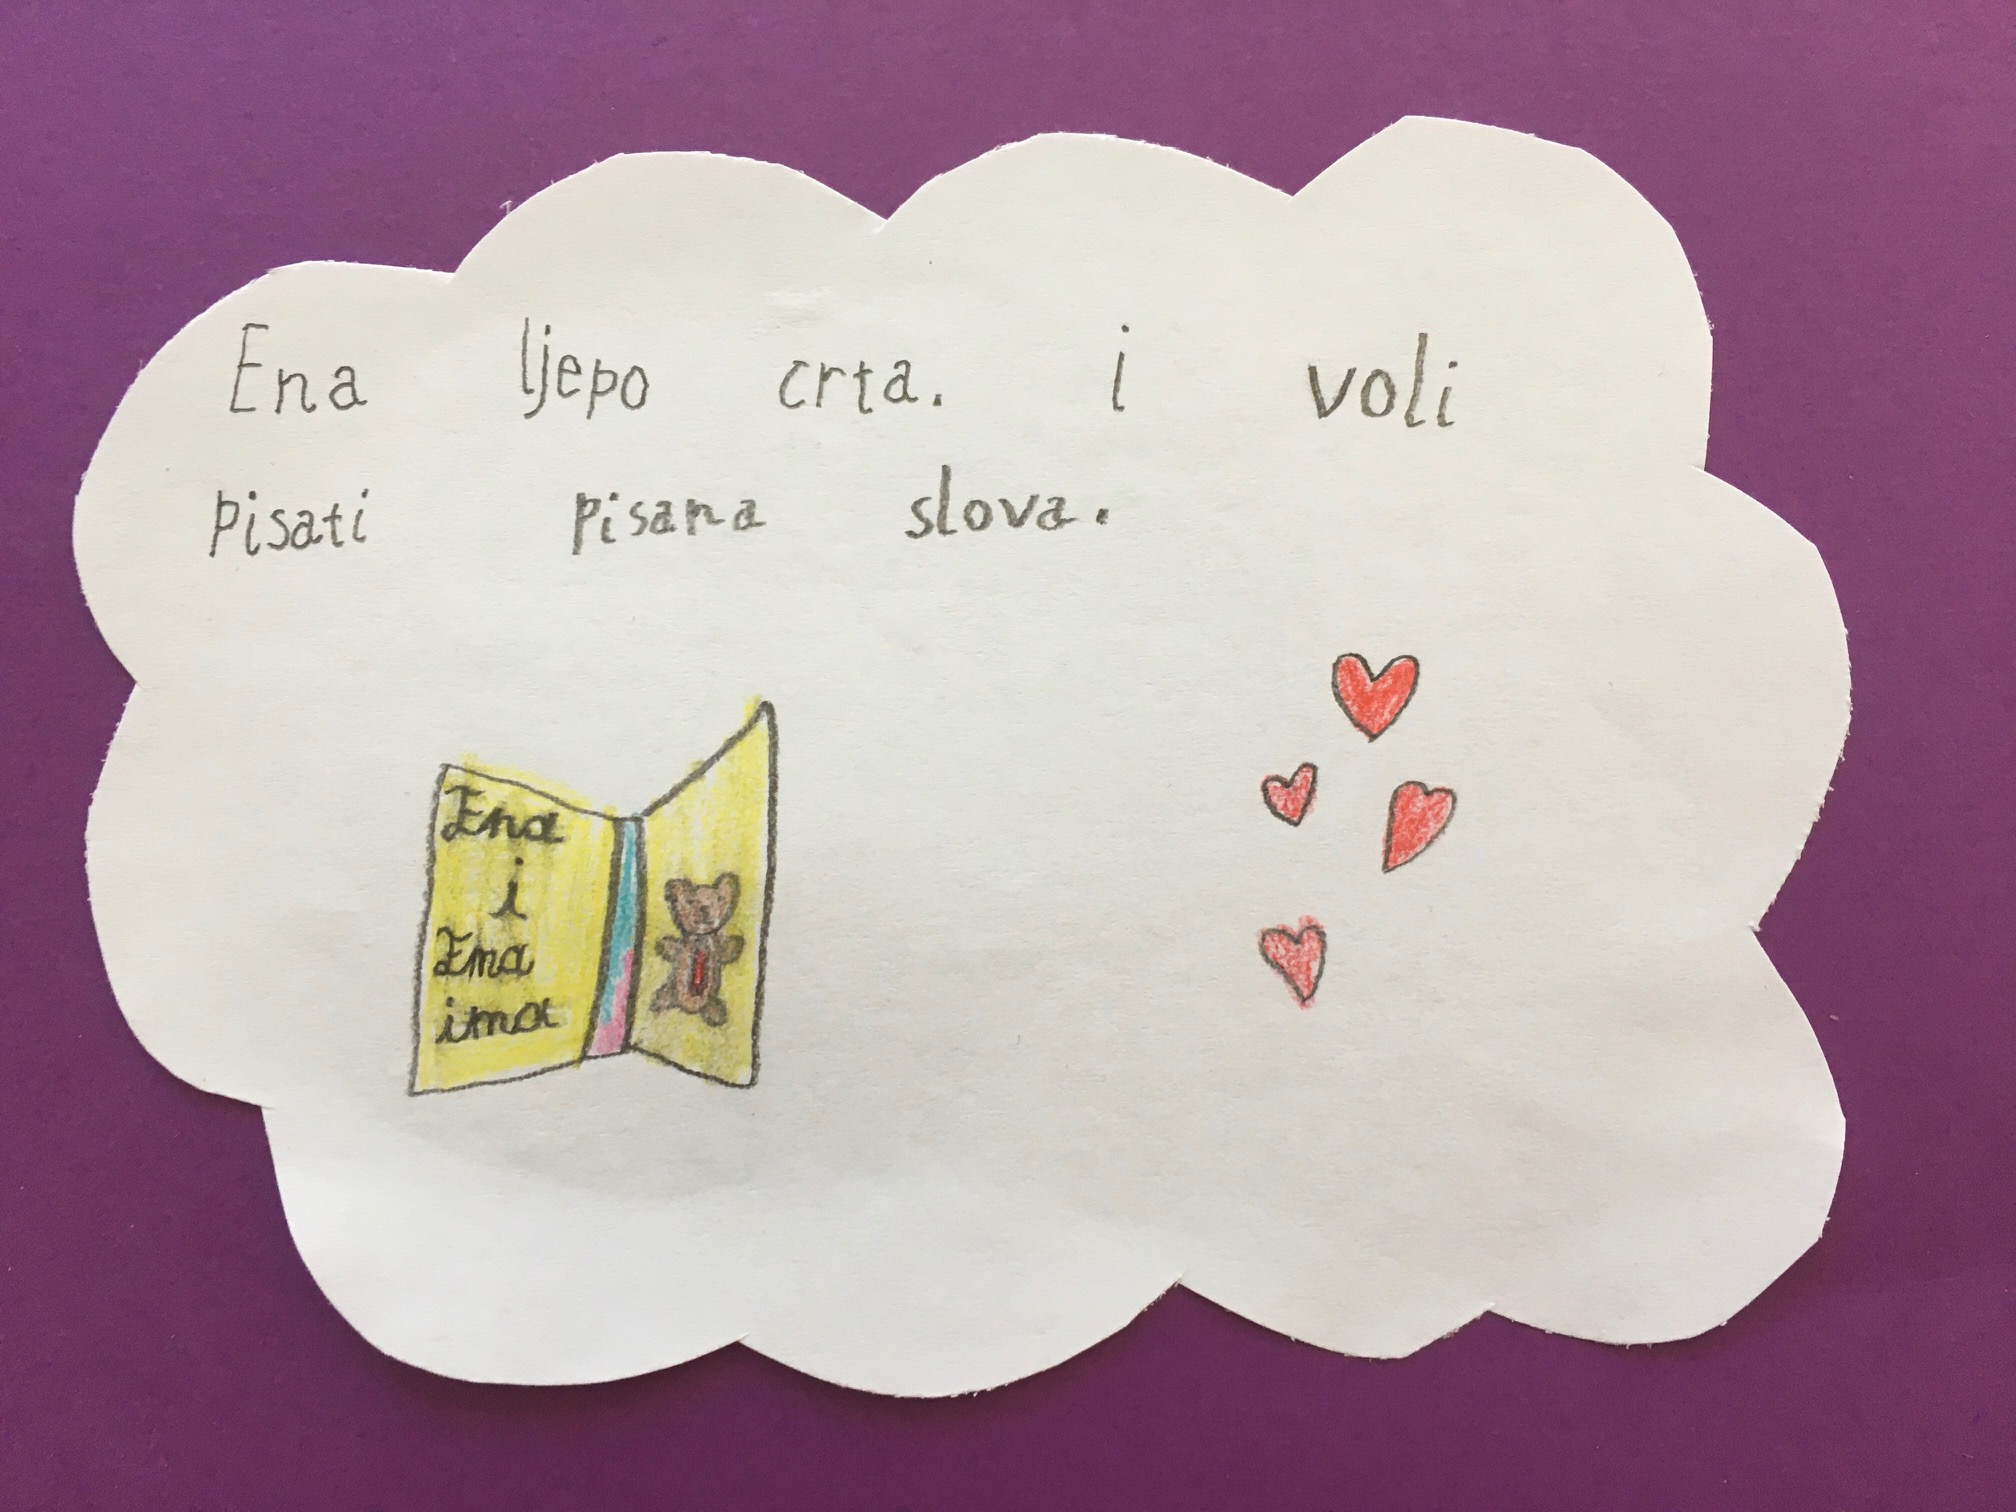 Ena ljepo crta. i voli
pisati pisana slova.
Ena
i
Ema
ima